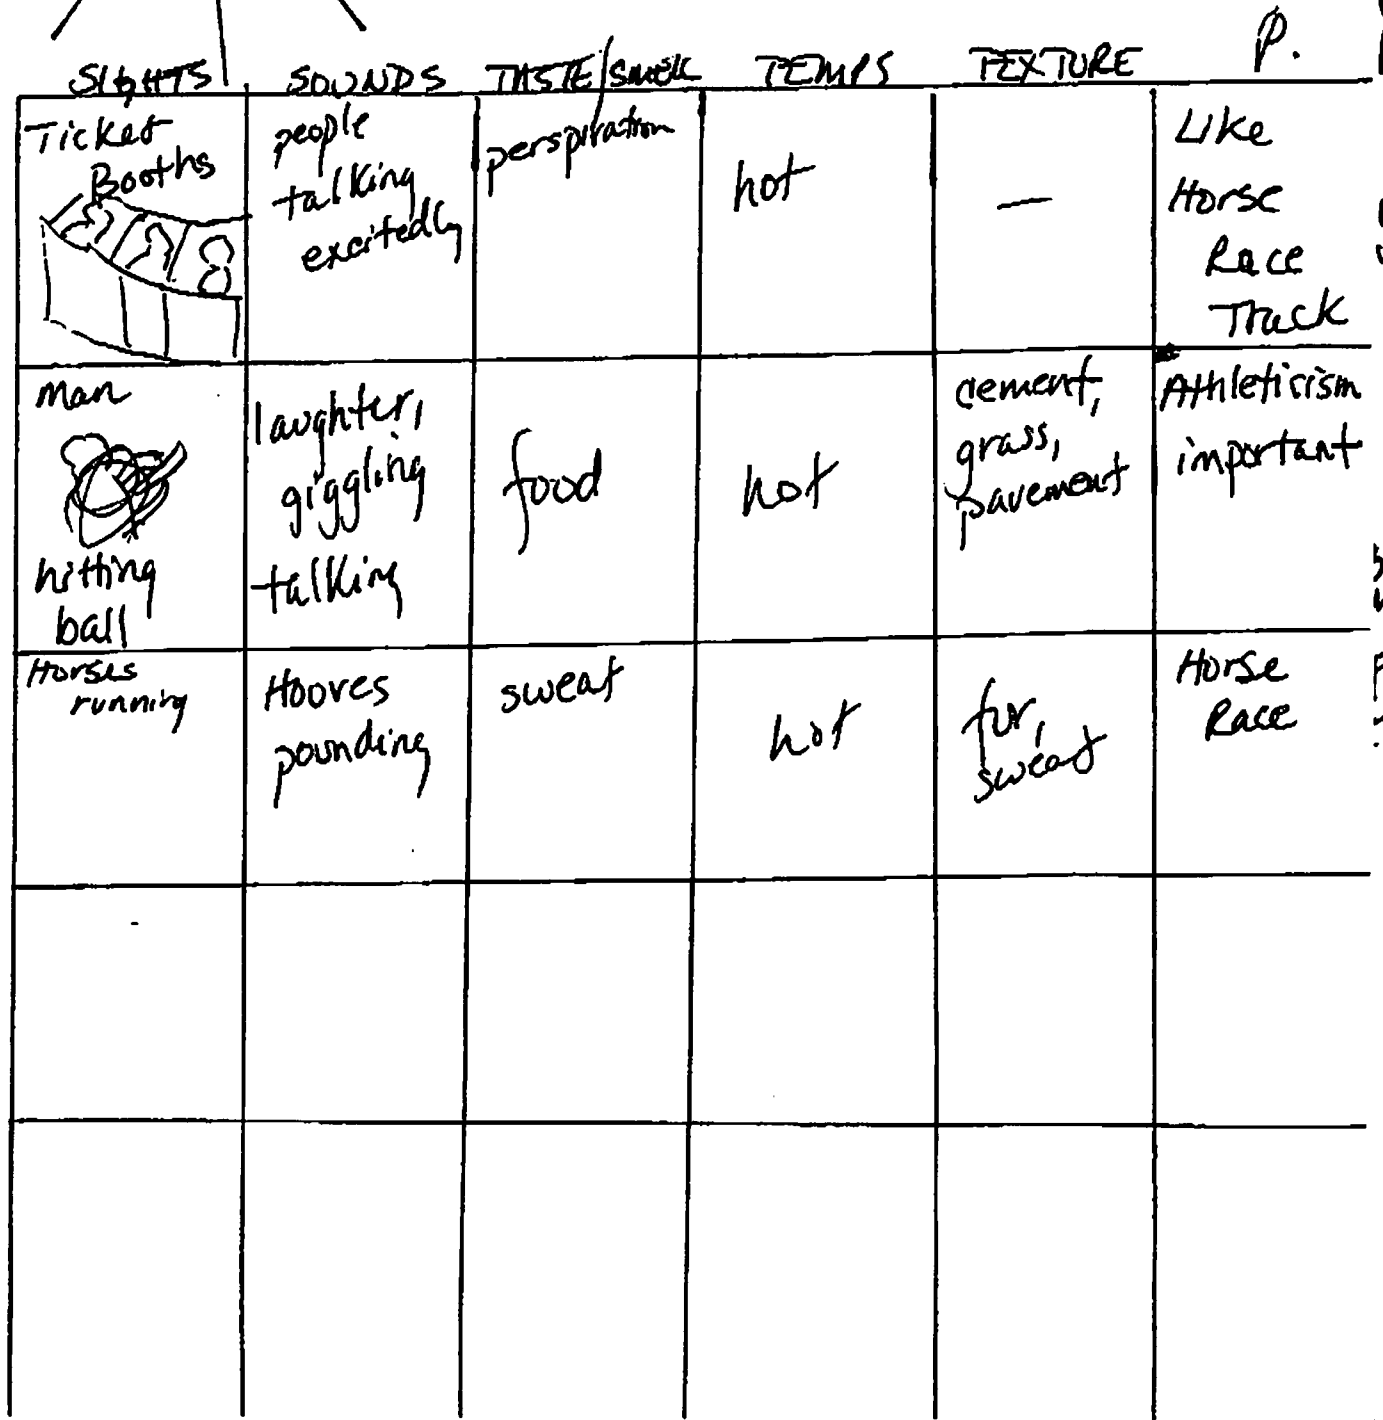 SIGHTS SOUNDS TASTE/SMELL TEMPS TEXTURE P.
Ticket
Booths
people
talking
excitedly
perspiration
hot
—
Like
Horse
Race
Track
man
hitting
ball
laughter,
giggling
talking
food
hot
cement,
grass,
pavement
Athleticism
important
Horses
running
Hooves
pounding
sweat
hot
fur,
sweat
Horse
Race